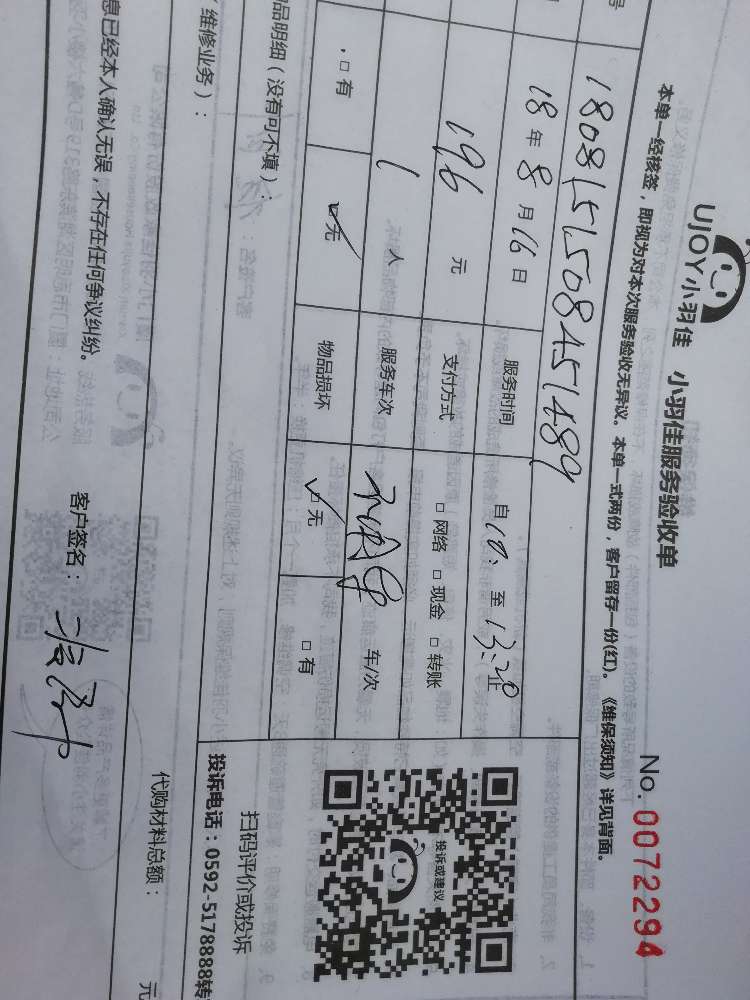 UJOY小羽佳 小羽佳服务验收单
No. 0072294
本单一经核签，即视为对本次服务验收无异议。本单一式两份，客户留存一份(红)。《维保须知》详见背面。
号 180815150845489
18年8月16日 服务时间 自10、至13:20止
196 元 支付方式 □网络 □现金 □转账
1 人 服务车次 车/次
□有 □无 物品损坏 □无 □有
品明细（没有可不填）：
（维修业务）：
投诉或建议
扫码评价或投诉
投诉电话：0592-5178888转
代购材料总额： 元
息已经本人确认无误，不存在任何争议纠纷。 客户签名：